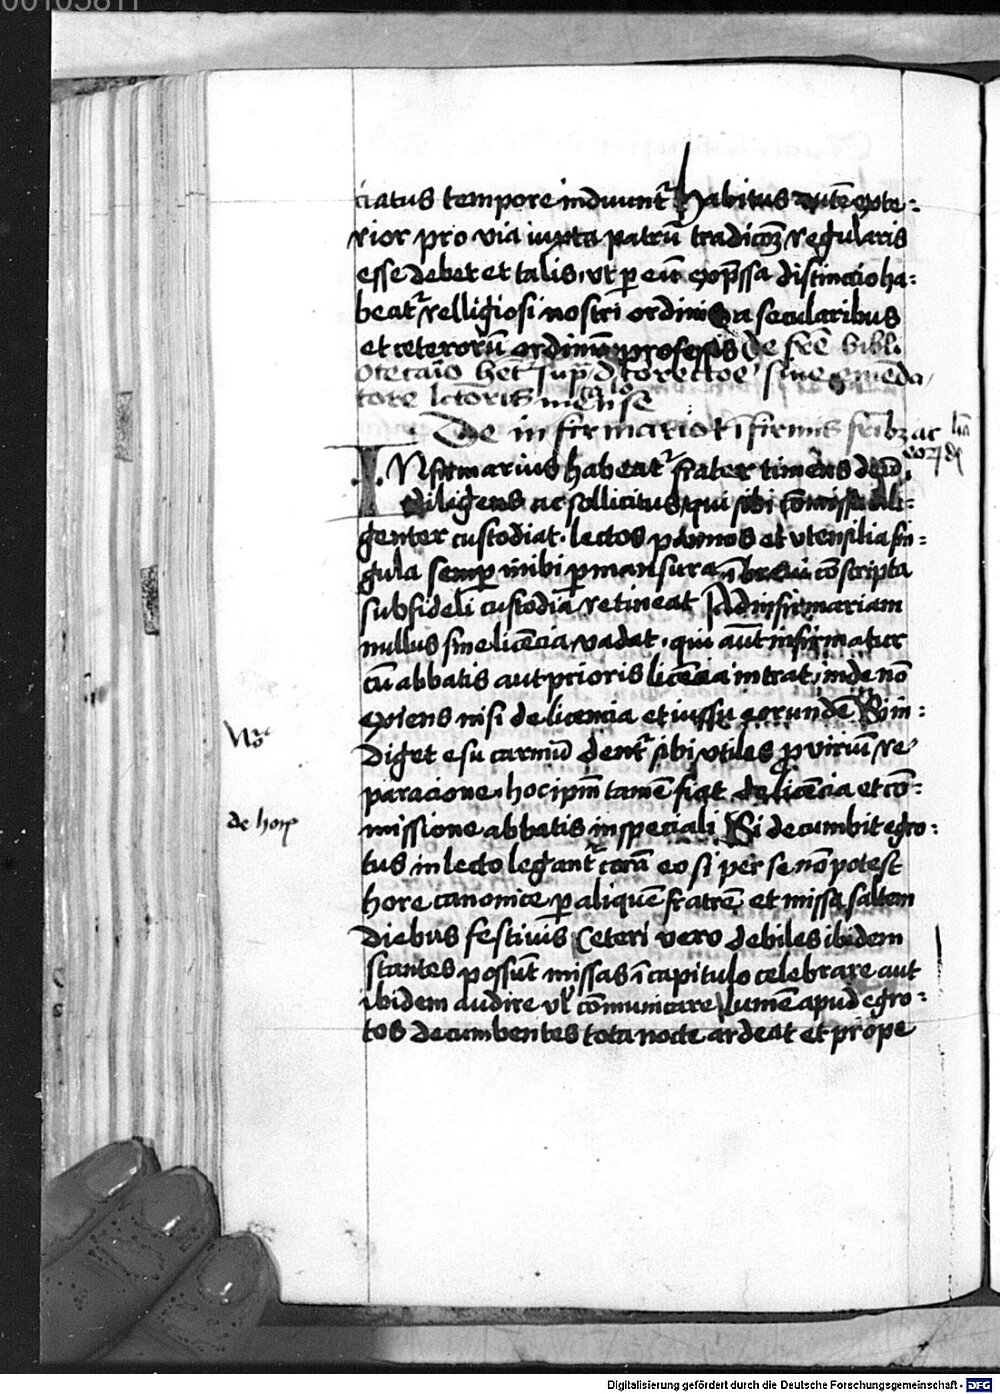 ciatus tempore induunt̄ habitus aūte exte:
rior pro via iuxta patrū tradicōȝ regularis
esse debet et talis ut ꝑ eū exp̄ssa distinctio ha:
beat̄ relligiosi nostri ordinis a secularibus
et ceterorū ordinū professis De frē bibli
otecaio sup̄ correctoē siue emēda
tore lc̄toris mense
De infirmario et īfirmis frībȝ ac
INfirmarius habeat̄ frater timēns deū
diligens ac sollicitus qui sibi cōmissa dili:
genter custodiat lectos pannos et utensilia sin:
gula semꝑ inibi ꝑmansura ī breui cōscripta
sub fideli custodia retineat Ad infirmariam
nullus sine licēcia vadat qui aūt infirmatur
cū abbatis aut prioris licēcia intrat inde nō
exiens nisi de licencia et iussu eorundē Si in:
diget esu carniū dent̄ sibi utiles ꝓ viriū re
paracione hoc ip̄m tamē fiat de licēcia et cō:
missione abbatis in speciali Si decumbit egro:
tus in lecto legant̄ corā eo si per se nō potest
hore canonice ꝑ aliquē fratrē et missa saltem
diebus festiuis Ceteri vero debiles ibidem
stantes possūt missas ī capitulo celebrare aut
ibidem audire vl̄ cōmunicare Lumē apud egro:
tos decumbentes tota nocte ardeat et prope
de horis
Digitalisierung gefördert durch die Deutsche Forschungsgemeinschaft - DFG